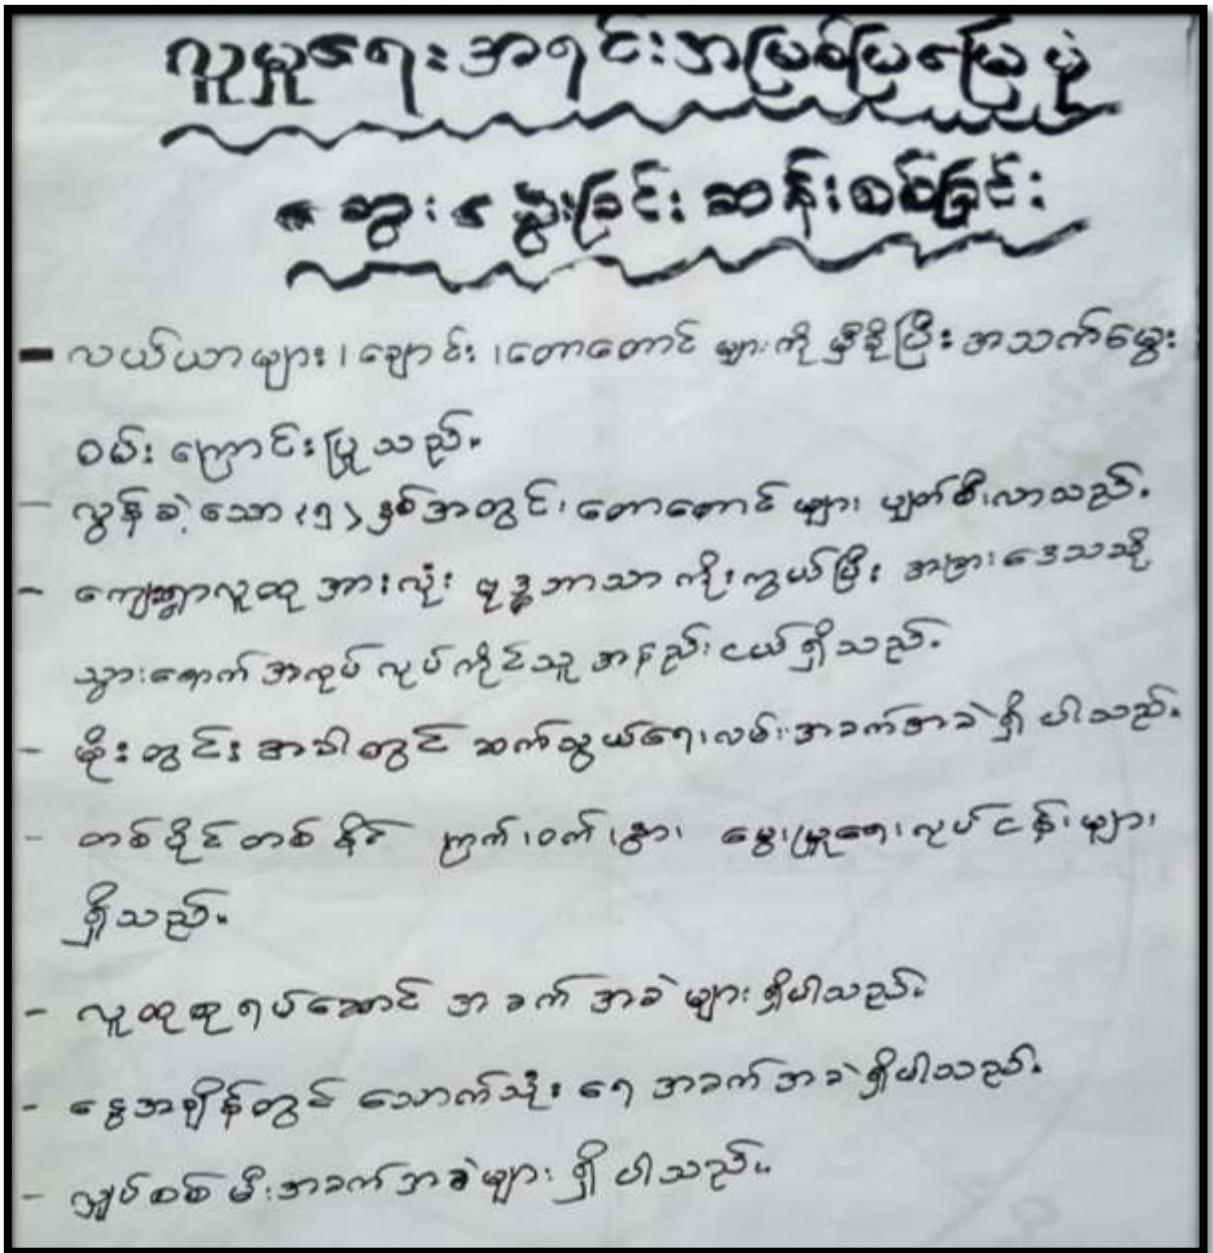 လူမှုရေးအရင်းအမြစ်ပြမြေပုံ
ဆွေးနွေးခြင်းဆန်းစစ်ခြင်း
- လယ်ယာများ၊ ချောင်း၊ တောတောင် များကို မှီခိုပြီး အသက်မွေး
ဝမ်း ကြောင်းပြုသည်။
- လွန်ခဲ့သော (၅) နှစ်အတွင်း တောတောင် များ ပျက်စီးလာသည်။
- ကျေးရွာလူထု အားလုံး ဗုဒ္ဓဘာသာ ကိုးကွယ်ပြီး အခြားဒေသသို့
သွားရောက်အလုပ် လုပ်ကိုင်သူ အနည်းငယ်ရှိသည်။
- မိုးတွင်း အခါတွင် ဆက်သွယ်ရေးလမ်းအခက်အခဲ ရှိ ပါသည်။
- တစ်ပိုင်တစ်နိုင် ကြက်၊ ဝက်၊ နွား မွေးမြူရေးလုပ်ငန်းများ
ရှိသည်။
- လူထုစုရပ်ဆောင် အခက်အခဲများရှိပါသည်။
- နွေအချိန်တွင် သောက်သုံး ရေ အခက်အခဲရှိပါသည်။
- လျှပ်စစ်မီးအခက်အခဲများ ရှိ ပါသည်။